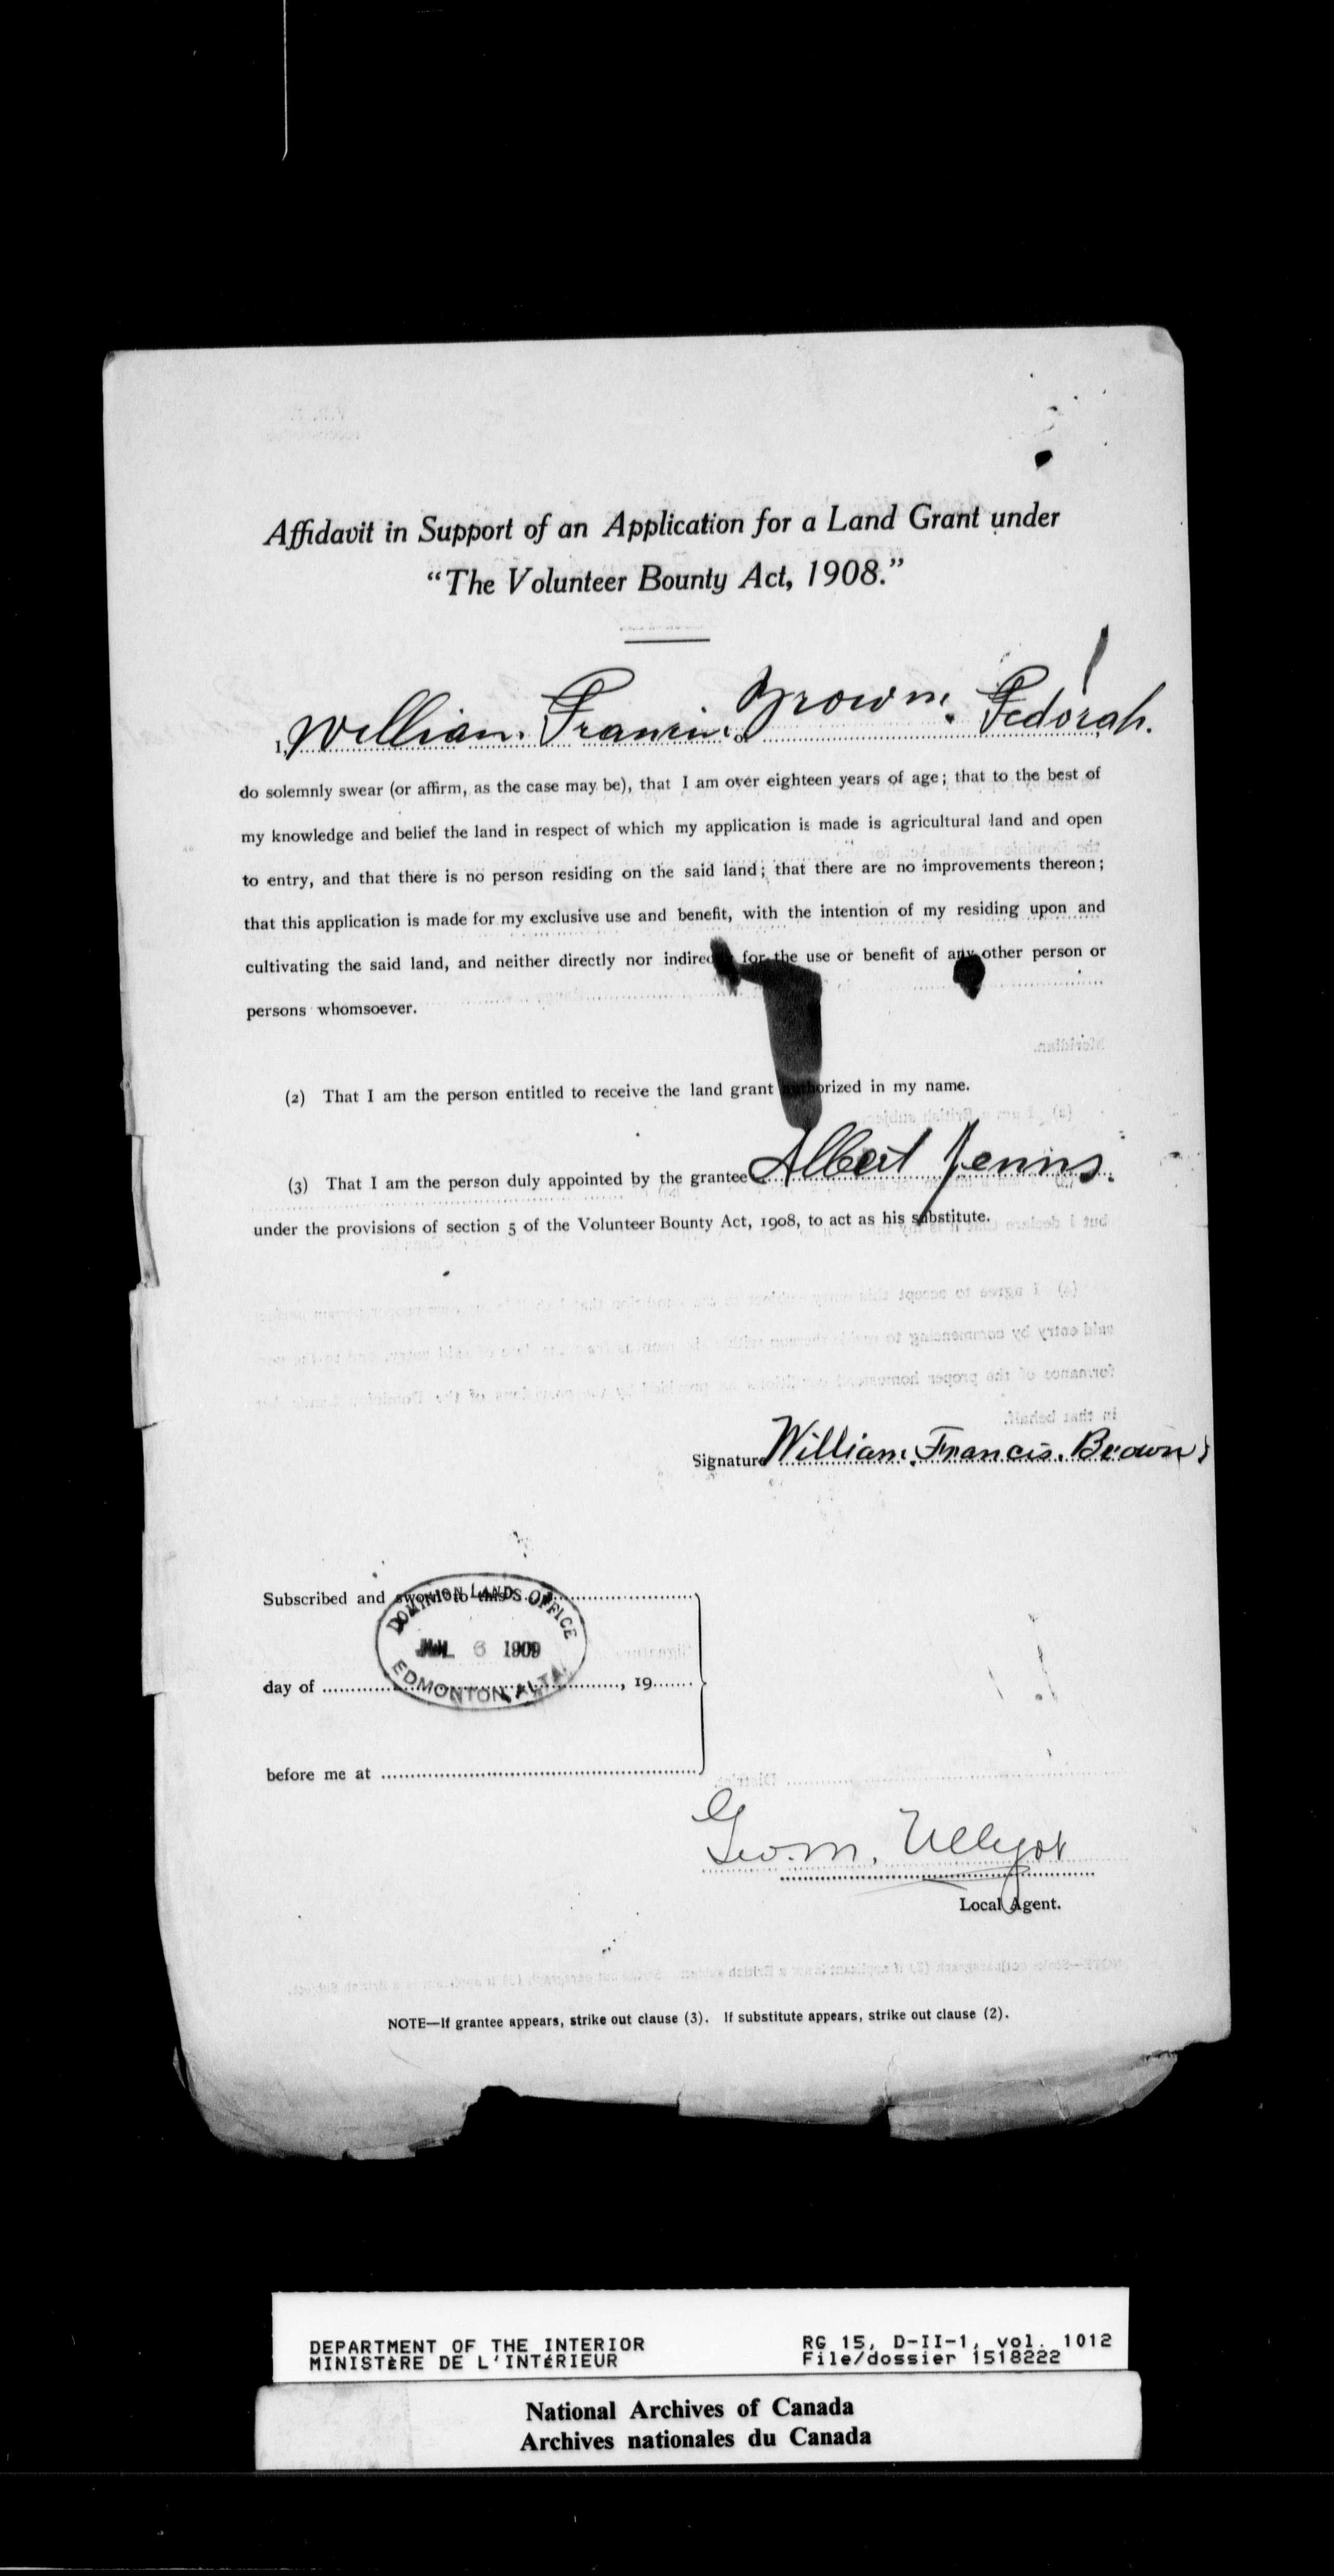 Affidavit in Support of an Application for a Land Grant under
"The Volunteer Bounty Act, 1908."
I, William Francis Brown. Fedorah.
do solemnly swear (or affirm, as the case may be), that I am over eighteen years of age; that to the best of
my knowledge and belief the land in respect of which my application is made is agricultural land and open
to entry, and that there is no person residing on the said land; that there are no improvements thereon;
that this application is made for my exclusive use and benefit, with the intention of my residing upon and
cultivating the said land, and neither directly nor indirectly for the use or benefit of any other person or
persons whomsoever.
(2) That I am the person entitled to receive the land grant authorized in my name.
(3) That I am the person duly appointed by the grantee Albert Jenns.
under the provisions of section 5 of the Volunteer Bounty Act, 1908, to act as his substitute.
Signature William. Francis. Brown
Subscribed and sworn to this
DOMINION LANDS OFFICE
6 1909
EDMONTON, ALTA.
day of , 19
before me at
Geo. M.
Local Agent.
NOTE—If grantee appears, strike out clause (3). If substitute appears, strike out clause (2).
DEPARTMENT OF THE INTERIOR RG 15, D-II-1, vol. 1012
MINISTÈRE DE L'INTÉRIEUR File/dossier 1518222
National Archives of Canada
Archives nationales du Canada